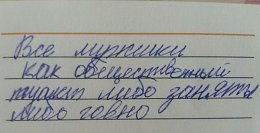 Все мужики
как общественный
туалет либо заняты
либо говно